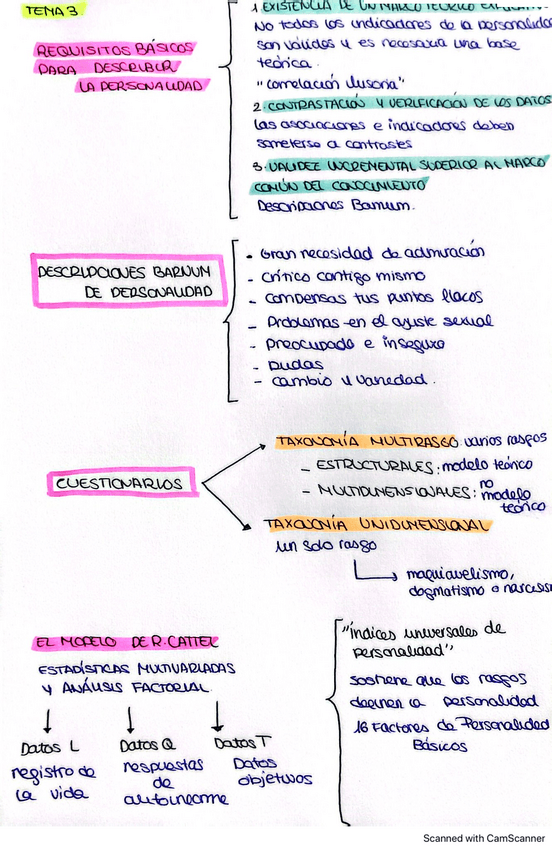 TEMA 3
REQUISITOS BÁSICOS
PARA DESCRIBIR
LA PERSONALIDAD
1. EXISTENCIA DE UN MARCO TEÓRICO
No todos los indicadores de la personalidad
son válidos y es necesaria una base
teórica.
"correlación ilusoria"
2. CONTRASTACIÓN Y VERIFICACIÓN DE LOS DATOS
Las asociaciones e indicadores deben
someterse a contrastes
3. VALIDEZ INCREMENTAL SUPERIOR AL MARCO
COMÚN DEL CONOCIMIENTO
Descripciones Barnum.
DESCRIPCIONES BARNUM
DE PERSONALIDAD
• Gran necesidad de admiración
- Crítico contigo mismo
- Compensas tus puntos flacos
- Problemas en el ajuste sexual
- Preocupado e inseguro
- Dudas
- Cambio y variedad.
CUESTIONARIOS
TAXONOMÍA MULTIRASGO varios rasgos
- ESTRUCTURALES: modelo teórico
- MULTIDIMENSIONALES: no modelo
teórico
TAXONOMÍA UNIDIMENSIONAL
un solo rasgo
maquiavelismo,
dogmatismo o
EL MODELO DE R. CATTEL
ESTADÍSTICAS MULTIVARIADAS
Y ANÁLISIS FACTORIAL
Datos L
registro de
la vida
Datos Q
respuestas
de
autoinforme
Datos T
Datos
objetivos
"Índices universales de
personalidad"
sostiene que los rasgos
definen la personalidad
16 Factores de Personalidad
Básicos
Scanned with CamScanner